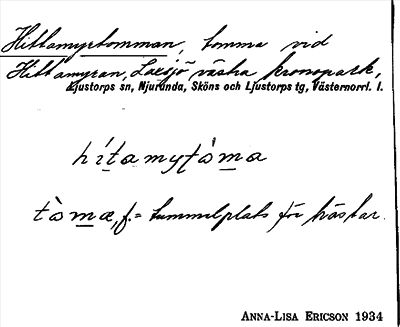 Hittamyrtomman, tomma vid
Hittamyran, Laxsjö västra kronopark,
Ljustorps sn, Njurunda, Sköns och Ljustorps tg, Västernorrl. l.
hítamyṭòma
tòmæ, f. = tummelplats för hästar.
ANNA-LISA ERICSON 1934